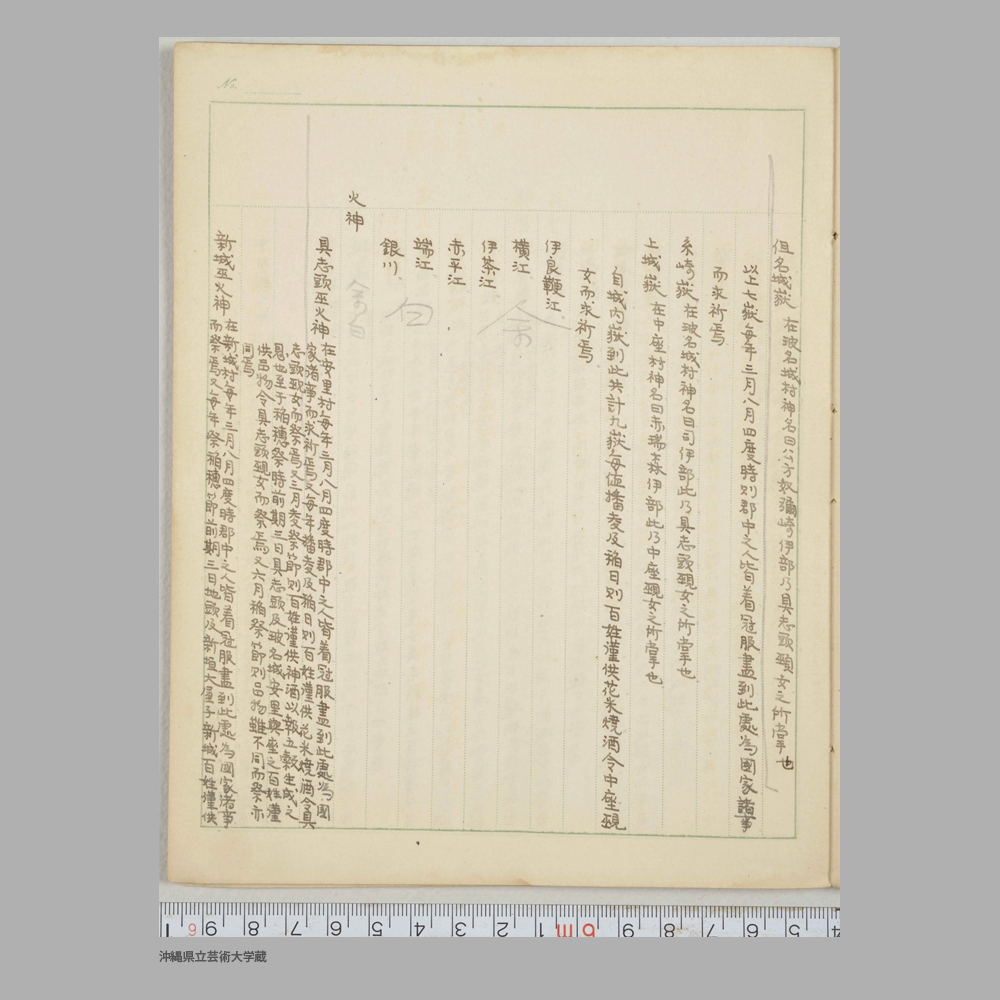 No.
但名城嶽 在玻名城村神名曰公方奴彌崎伊部乃具志頭覡女之所掌也
以上七嶽每年二月八月四度時則郡中之人皆着冠服盡到此處為國家諸事
而求祈焉
糸崎嶽 在玻名城村神名曰司伊部此乃具志頭覡女之所掌也
上城嶽 在中座村神名曰赤瑞森伊部此乃中座覡女之所掌也
自城内嶽到此共計九嶽每值播麦及稲日則百姓謹供花米燒酒令中座覡
女而求祈焉
伊良鞭江
橫江
伊茶江
赤平江
端江
銀川
火神
具志頭巫火神 在安里村每年二月八月四度時郡中之人皆着冠服盡到此處為國
家諸事而求祈焉又每年播麦及稲日則百姓謹供花米燒酒令具
志頭覡女而祭焉又三月麦祭節則百姓謹供神酒以報五穀生成之
恩也至于稲穗祭時前期三日具志頭及玻名城安里與座之百姓謹
供品物令具志頭覡女而祭焉又六月稲祭節則品物雖不同而祭亦
同焉
新城巫火神 在新城村每年二月八月四度時郡中之人皆着冠服盡到此處為國家諸事
而祭焉又每年祭稲穗節前期三日地頭及新垣大屋子新城百姓謹供
沖縄県立芸術大学蔵